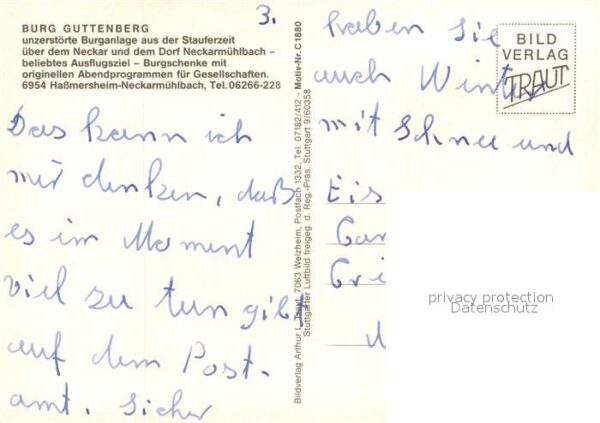 BURG GUTTENBERG
unzerstörte Burganlage aus der Stauferzeit
über dem Neckar und dem Dorf Neckarmühlbach –
beliebtes Ausflugsziel – Burgschenke mit
originellen Abendprogrammen für Gesellschaften.
6954 Haßmersheim-Neckarmühlbach, Tel. 06266-228
3.
Das kann ich
mir denken, daß
es im Moment
viel zu tun gibt
auf dem Post-
amt. Sicher
Bildverlag Arthur Traut, 7063 Welzheim, Postfach 1332, Tel. 07182/412 - Motiv-Nr. C1880
Stuttgarter Luftbild freigeg. d. Reg.-Präs. Stuttgart 9/60358
haben Sie
auch Winter
mit Schnee und
Eis
BILD
VERLAG
TRAUT
privacy protection
Datenschutz